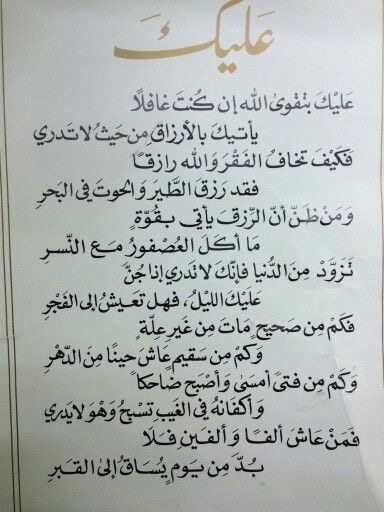 عَليكَ
عَلَيْكَ بتقوى الله إن كُنتَ غافلًا
يأتيكَ بالأرزاقِ مِن حَيثُ لا تَدري
فَكَيْفَ تخافُ الفَقْرَ وَالله رازقًا
فقد رَزقَ الطَّيرَ وَالحوتَ في البَحرِ
وَمَنْ ظَنّ أنّ الرّزقَ يأتي بقُوّةٍ
مَا أكلَ العُصْفورُ مَعَ النَّسرِ
تَزَوَّدْ مِنَ الدُّنيا فإنّكَ لا تَدري إذا جَنَّ
عَليْكَ الليْلُ، فهل تعيشُ إلى الفَجْرِ
فكَم مِن صَحيحٍ مَاتَ مِن غَيرِ عِلّةٍ
وَكم مِن سَقيمٍ عَاشَ حينًا مِنَ الدّهْرِ
وَكَم مِن فَتىً أمسى وَأصْبَحَ ضَاحكًا
وَأكفانُهُ في الغَيبِ تنسجُ وَهْوَ لا يَدري
فَمَنْ عَاشَ ألفًا وَألفَينِ فَلَا
بُدَّ مِن يَومٍ يُسَاقُ إلى القَبرِ